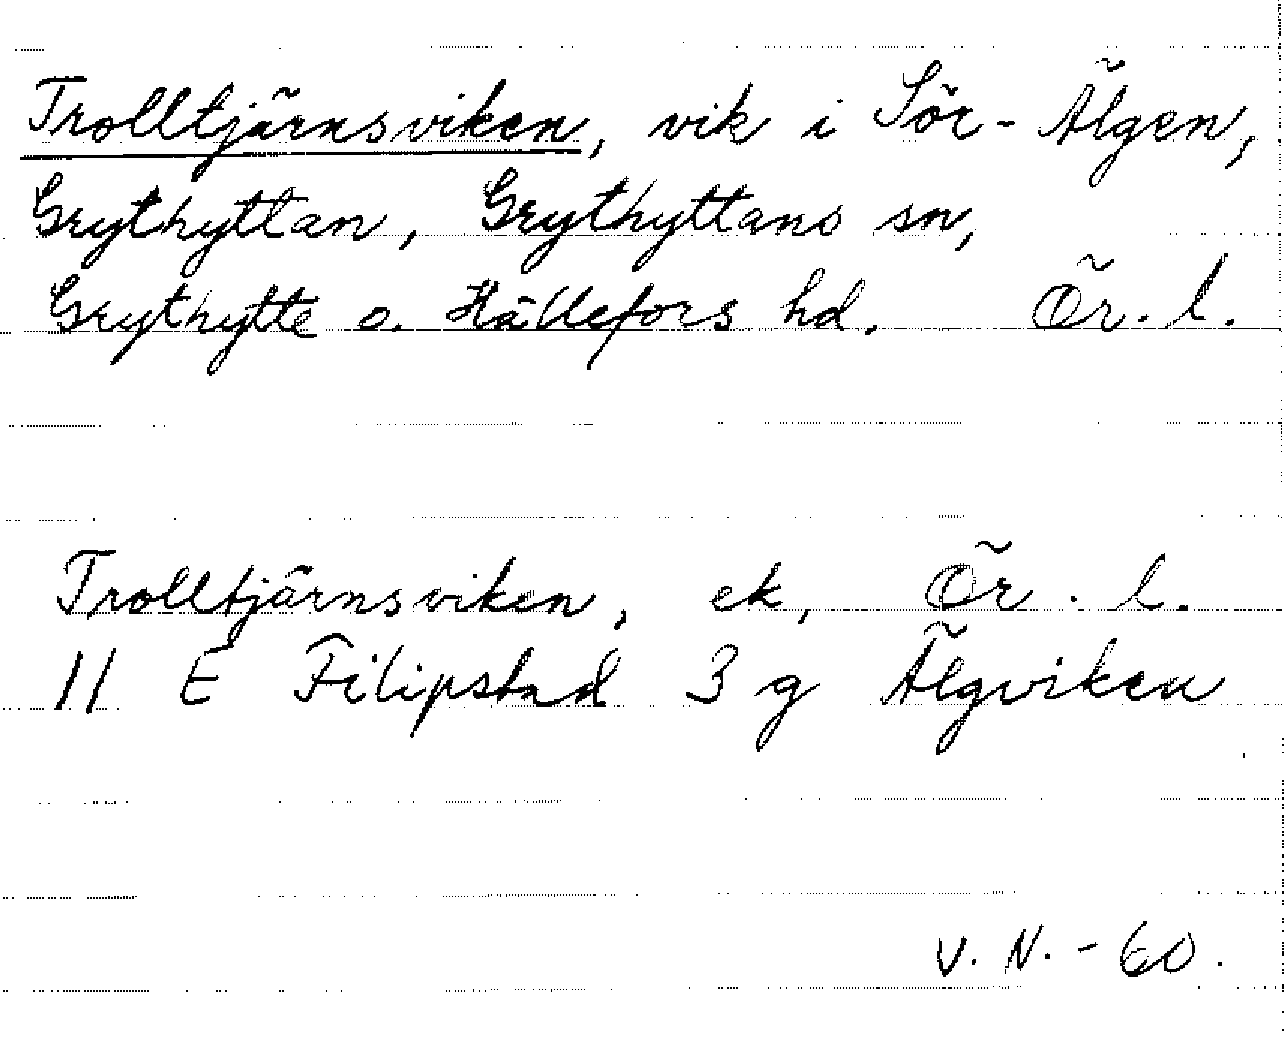 Trolltjärnsviken, vik i Sör-Älgen,
Grythyttan, Grythyttans sn,
Grythytte o. Hällefors hd. Ör. l.
Trolltjärnsviken, ek, Ör. l.
11 E Filipstad 3 g Älgviken
V. N. - 60.